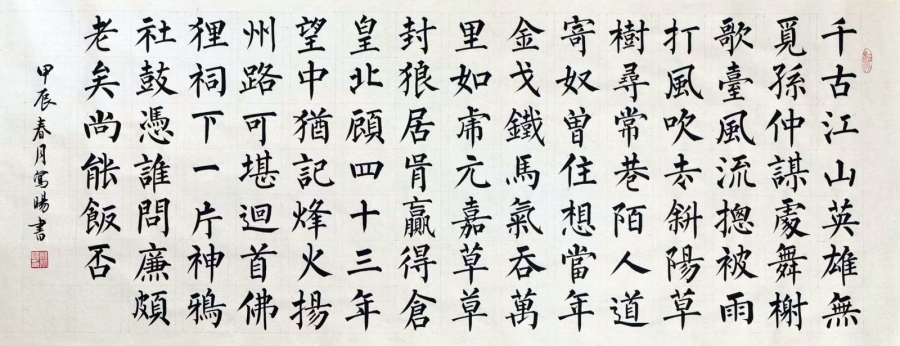 千古江山英雄無
覓孫仲謀處舞榭
歌臺風流摠被雨
打風吹去斜陽草
樹尋常巷陌人道
寄奴曾住想當年
金戈鐵馬氣吞萬
里如虎元嘉草草
封狼居胥贏得倉
皇北顧四十三年
望中猶記烽火揚
州路可堪迴首佛
狸祠下一片神鴉
社鼓憑誰問廉頗
老矣尚能飯否
甲辰春月暘書